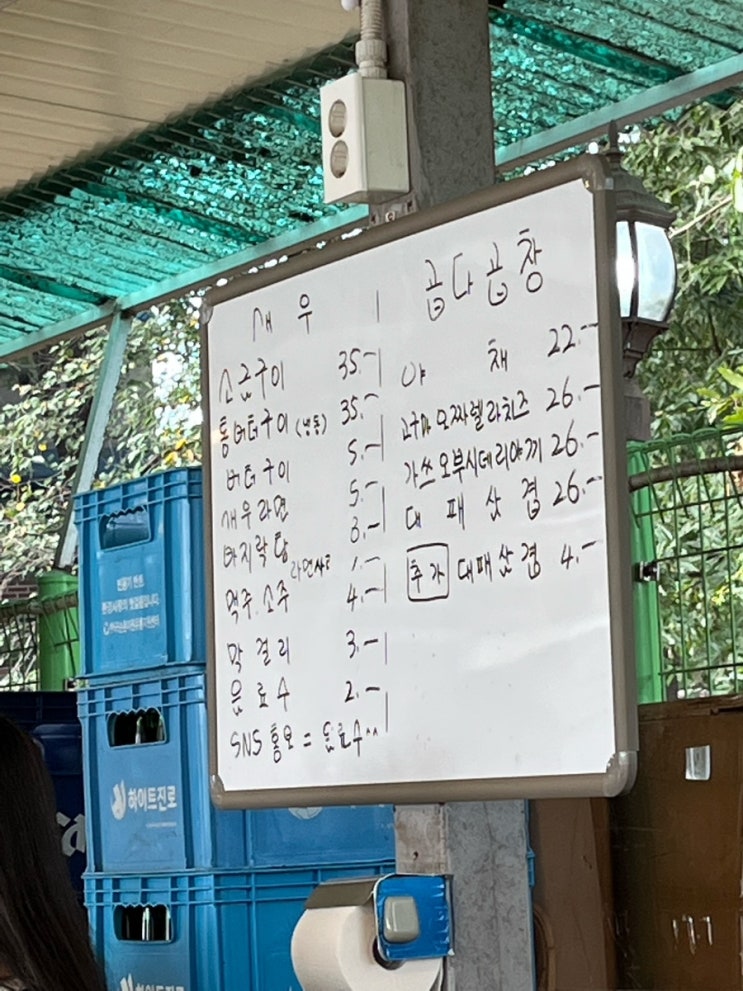 새우
소금구이 35.-
통버터구이 (냉동) 35.-
버터구이 5.-
새우라면 5.-
바지락탕 8.-
라면사리 1.-
맥주.소주 4.-
막걸리 3.-
음료수 2.-
SNS 홍보 = 음료수^^
곱다곱창
야채 22.-
고구마모짜렐라치즈 26.-
가쓰오부시데리야끼 26.-
대패삼겹 26.-
추가 대패삼겹 4.-
하이트진로
하이트진로